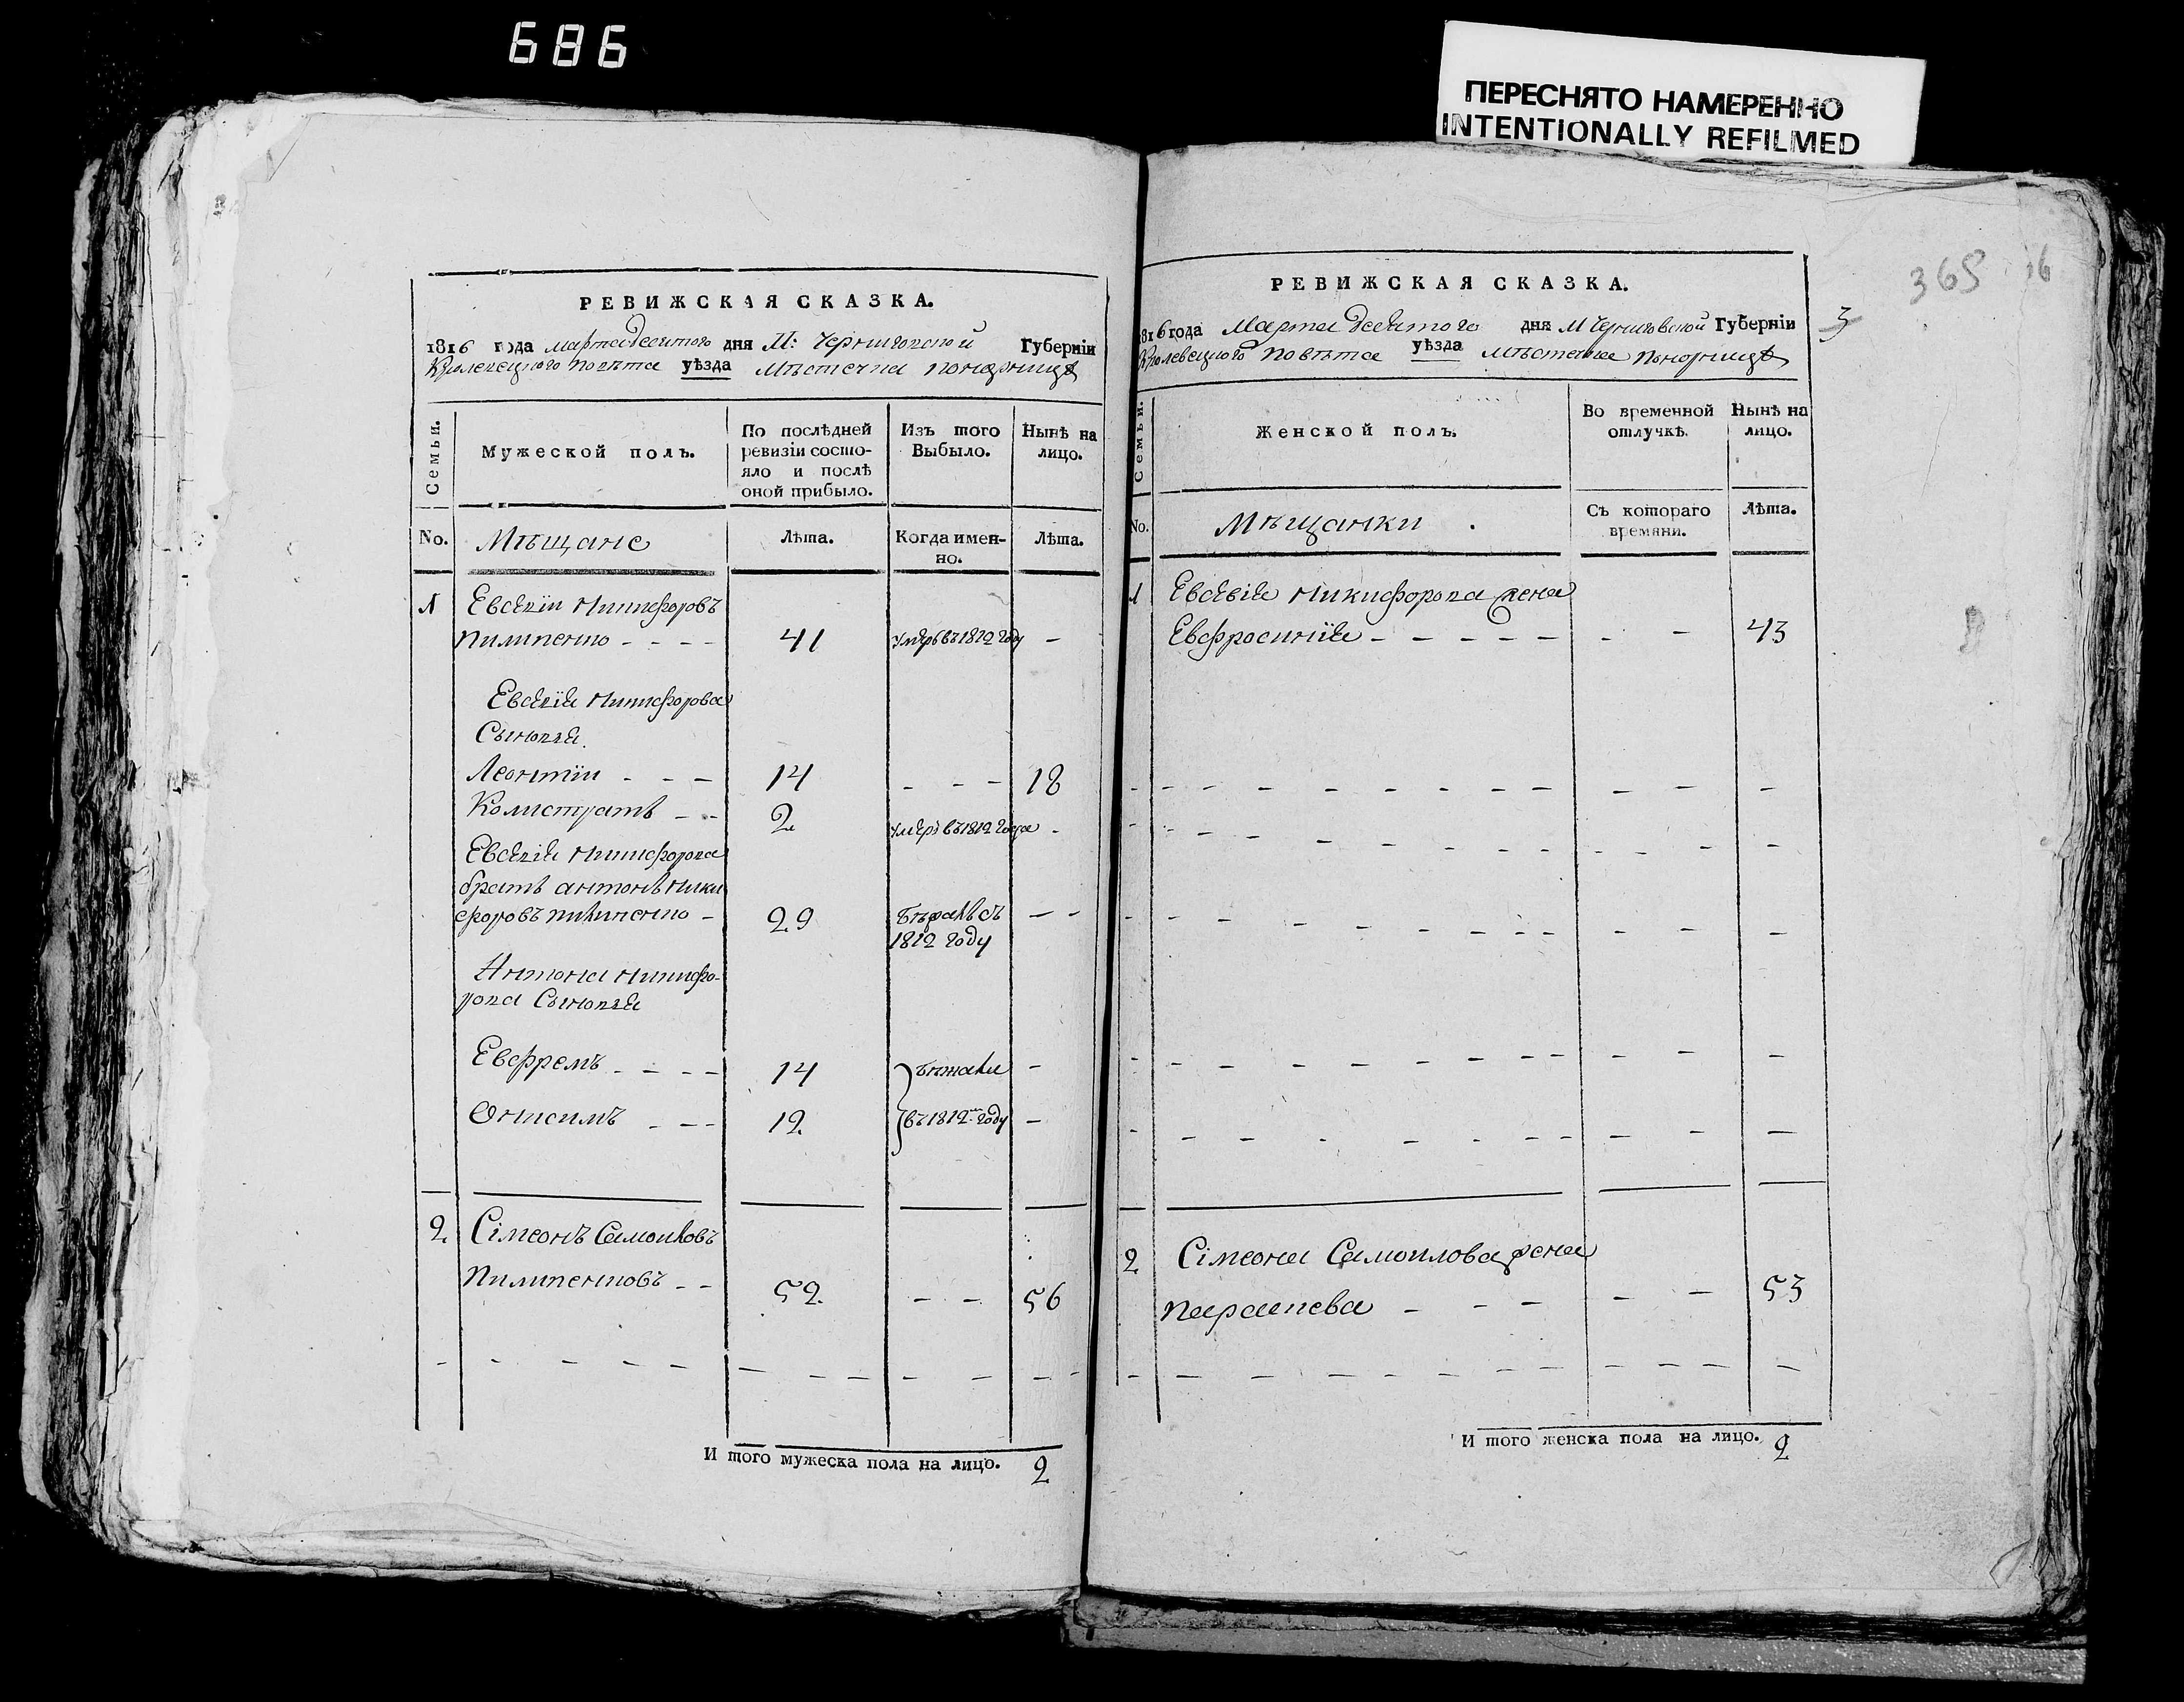 686
ПЕРЕСНЯТО НАМЕРЕННО
INTENTIONALLY REFILMED
РЕВИЖСКАЯ СКАЗКА.
1816 года марта десятого дня М: Черниговской Губерніи
Кролевецкого повѣта уѣзда мѣстечка Понорницѣ
Семьи.
Мужеской полъ.
По послѣдней ревизіи состо-
яло и послѣ
оной прибыло.
Изъ того
Выбыло.
Нынѣ на
лицо.
No.
Мѣщане
Лѣта.
Когда имен-
но.
Лѣта.
1 Евсѣвїи Никифоровъ
Пилипенко - - - - 41 умѣръ въ 1812 году -
Евсѣвїя Никифорова
Сыновья
Леонтїи - - - 14 - - - 18
Калистратъ - - 2 умѣръ въ 1812 года -
Евсѣвїя Никифорова
братъ антонъ Ники
форовъ пилипенко - 29 бѣжалъ съ - -
1812 году
Антона Никифо-
рова Сыновья
Евфремъ - - - - 14 бѣжали -
Онисимъ - - - 12 въ 1812м году -
2 Сімеонъ Самойловъ
Пилипенковъ - - 52 - - 56
И того мужеска пола на лицо. 2
365
16
3
РЕВИЖСКАЯ СКАЗКА.
1816 года Марта десятого дня М Черниговской Губерніи
Кролевецкого повѣта уѣзда мѣстечка Понорницѣ
Семьи.
Женской полъ.
Во временной
отлучкѣ.
Нынѣ на
лицо.
No.
Мѣщанки
Съ котораго
времяни.
Лѣта.
1 Евсѣвія Никифорова жена
Евфросинїя - - - - - - - 43
2 Сімеона Самоилова жена
Параскева - - - - - 53
И того женска пола на лицо. 2